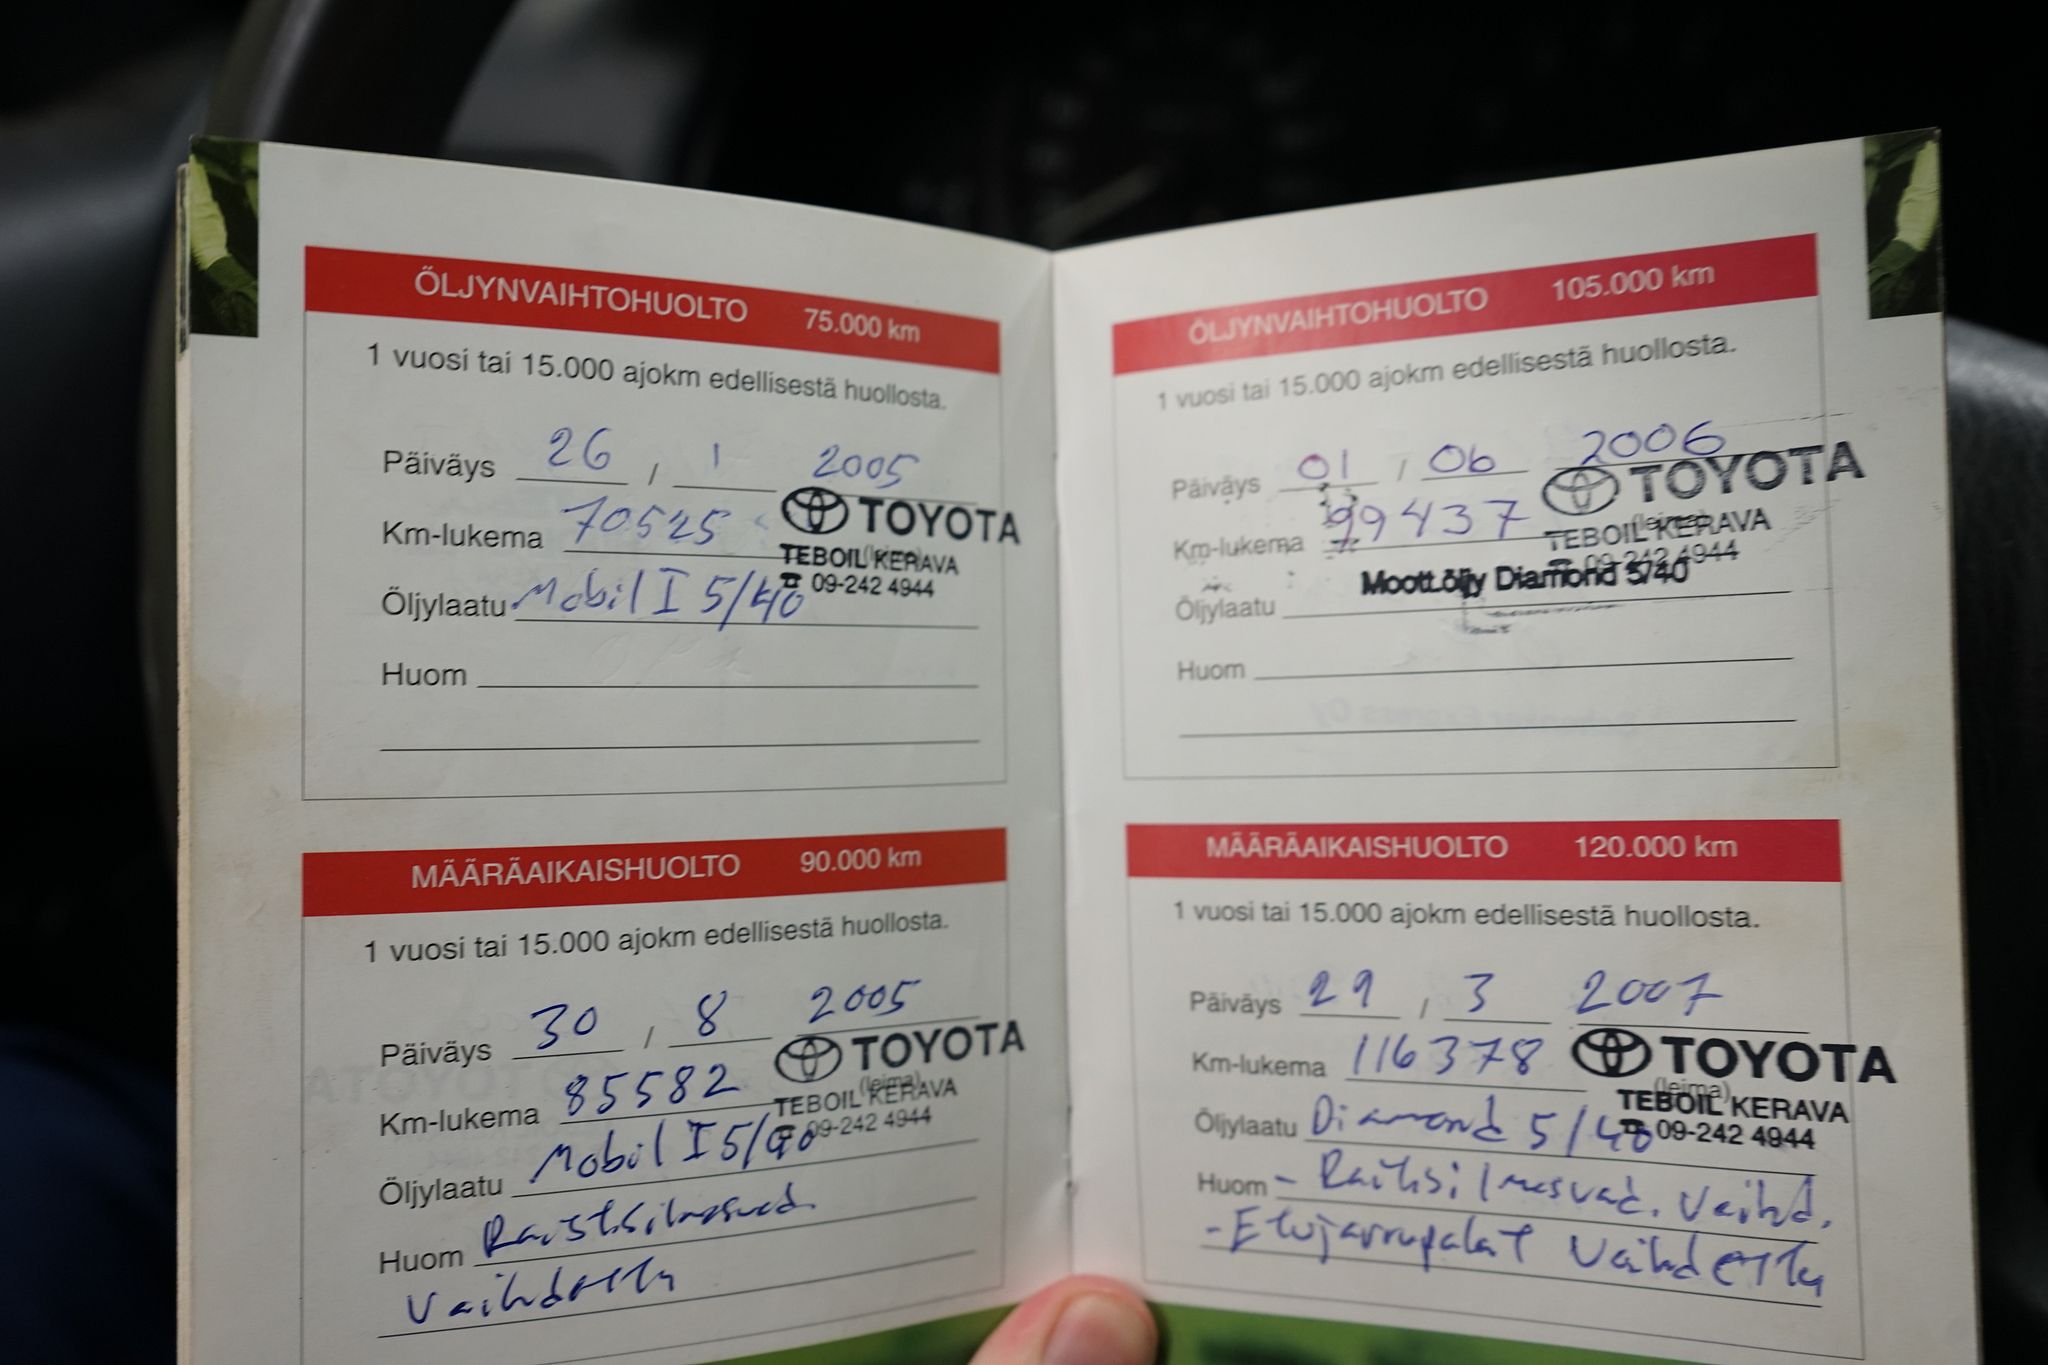 ÖLJYNVAIHTOHUOLTO 75.000 km
1 vuosi tai 15.000 ajokm edellisestä huollosta.
Päiväys 26 / 1 2005
TOYOTA
Km-lukema 70525
(leima)
TEBOIL KERAVA
☎ 09-242 4944
Öljylaatu Mobil I 5/40
Huom
MÄÄRÄAIKAISHUOLTO 90.000 km
1 vuosi tai 15.000 ajokm edellisestä huollosta.
Päiväys 30 / 8 2005
TOYOTA
Km-lukema 85582
(leima)
TEBOIL KERAVA
☎ 09-242 4944
Öljylaatu Mobil I 5/40
Huom Raitisilmasuod.
Vaihdettu
ÖLJYNVAIHTOHUOLTO 105.000 km
1 vuosi tai 15.000 ajokm edellisestä huollosta.
Päiväys 01 / 06 2006
TOYOTA
Km-lukema 99437
(leima)
TEBOIL KERAVA
☎ 09-242 4944
Moott.öljy Diamond 5/40
Öljylaatu
Huom
MÄÄRÄAIKAISHUOLTO 120.000 km
1 vuosi tai 15.000 ajokm edellisestä huollosta.
Päiväys 29 / 3 2007
TOYOTA
Km-lukema 116378
(leima)
TEBOIL KERAVA
☎ 09-242 4944
Öljylaatu Diamond 5/40
Huom - Raitisilmasuod. Vaihd.
- Etujarrupalat Vaihdettu